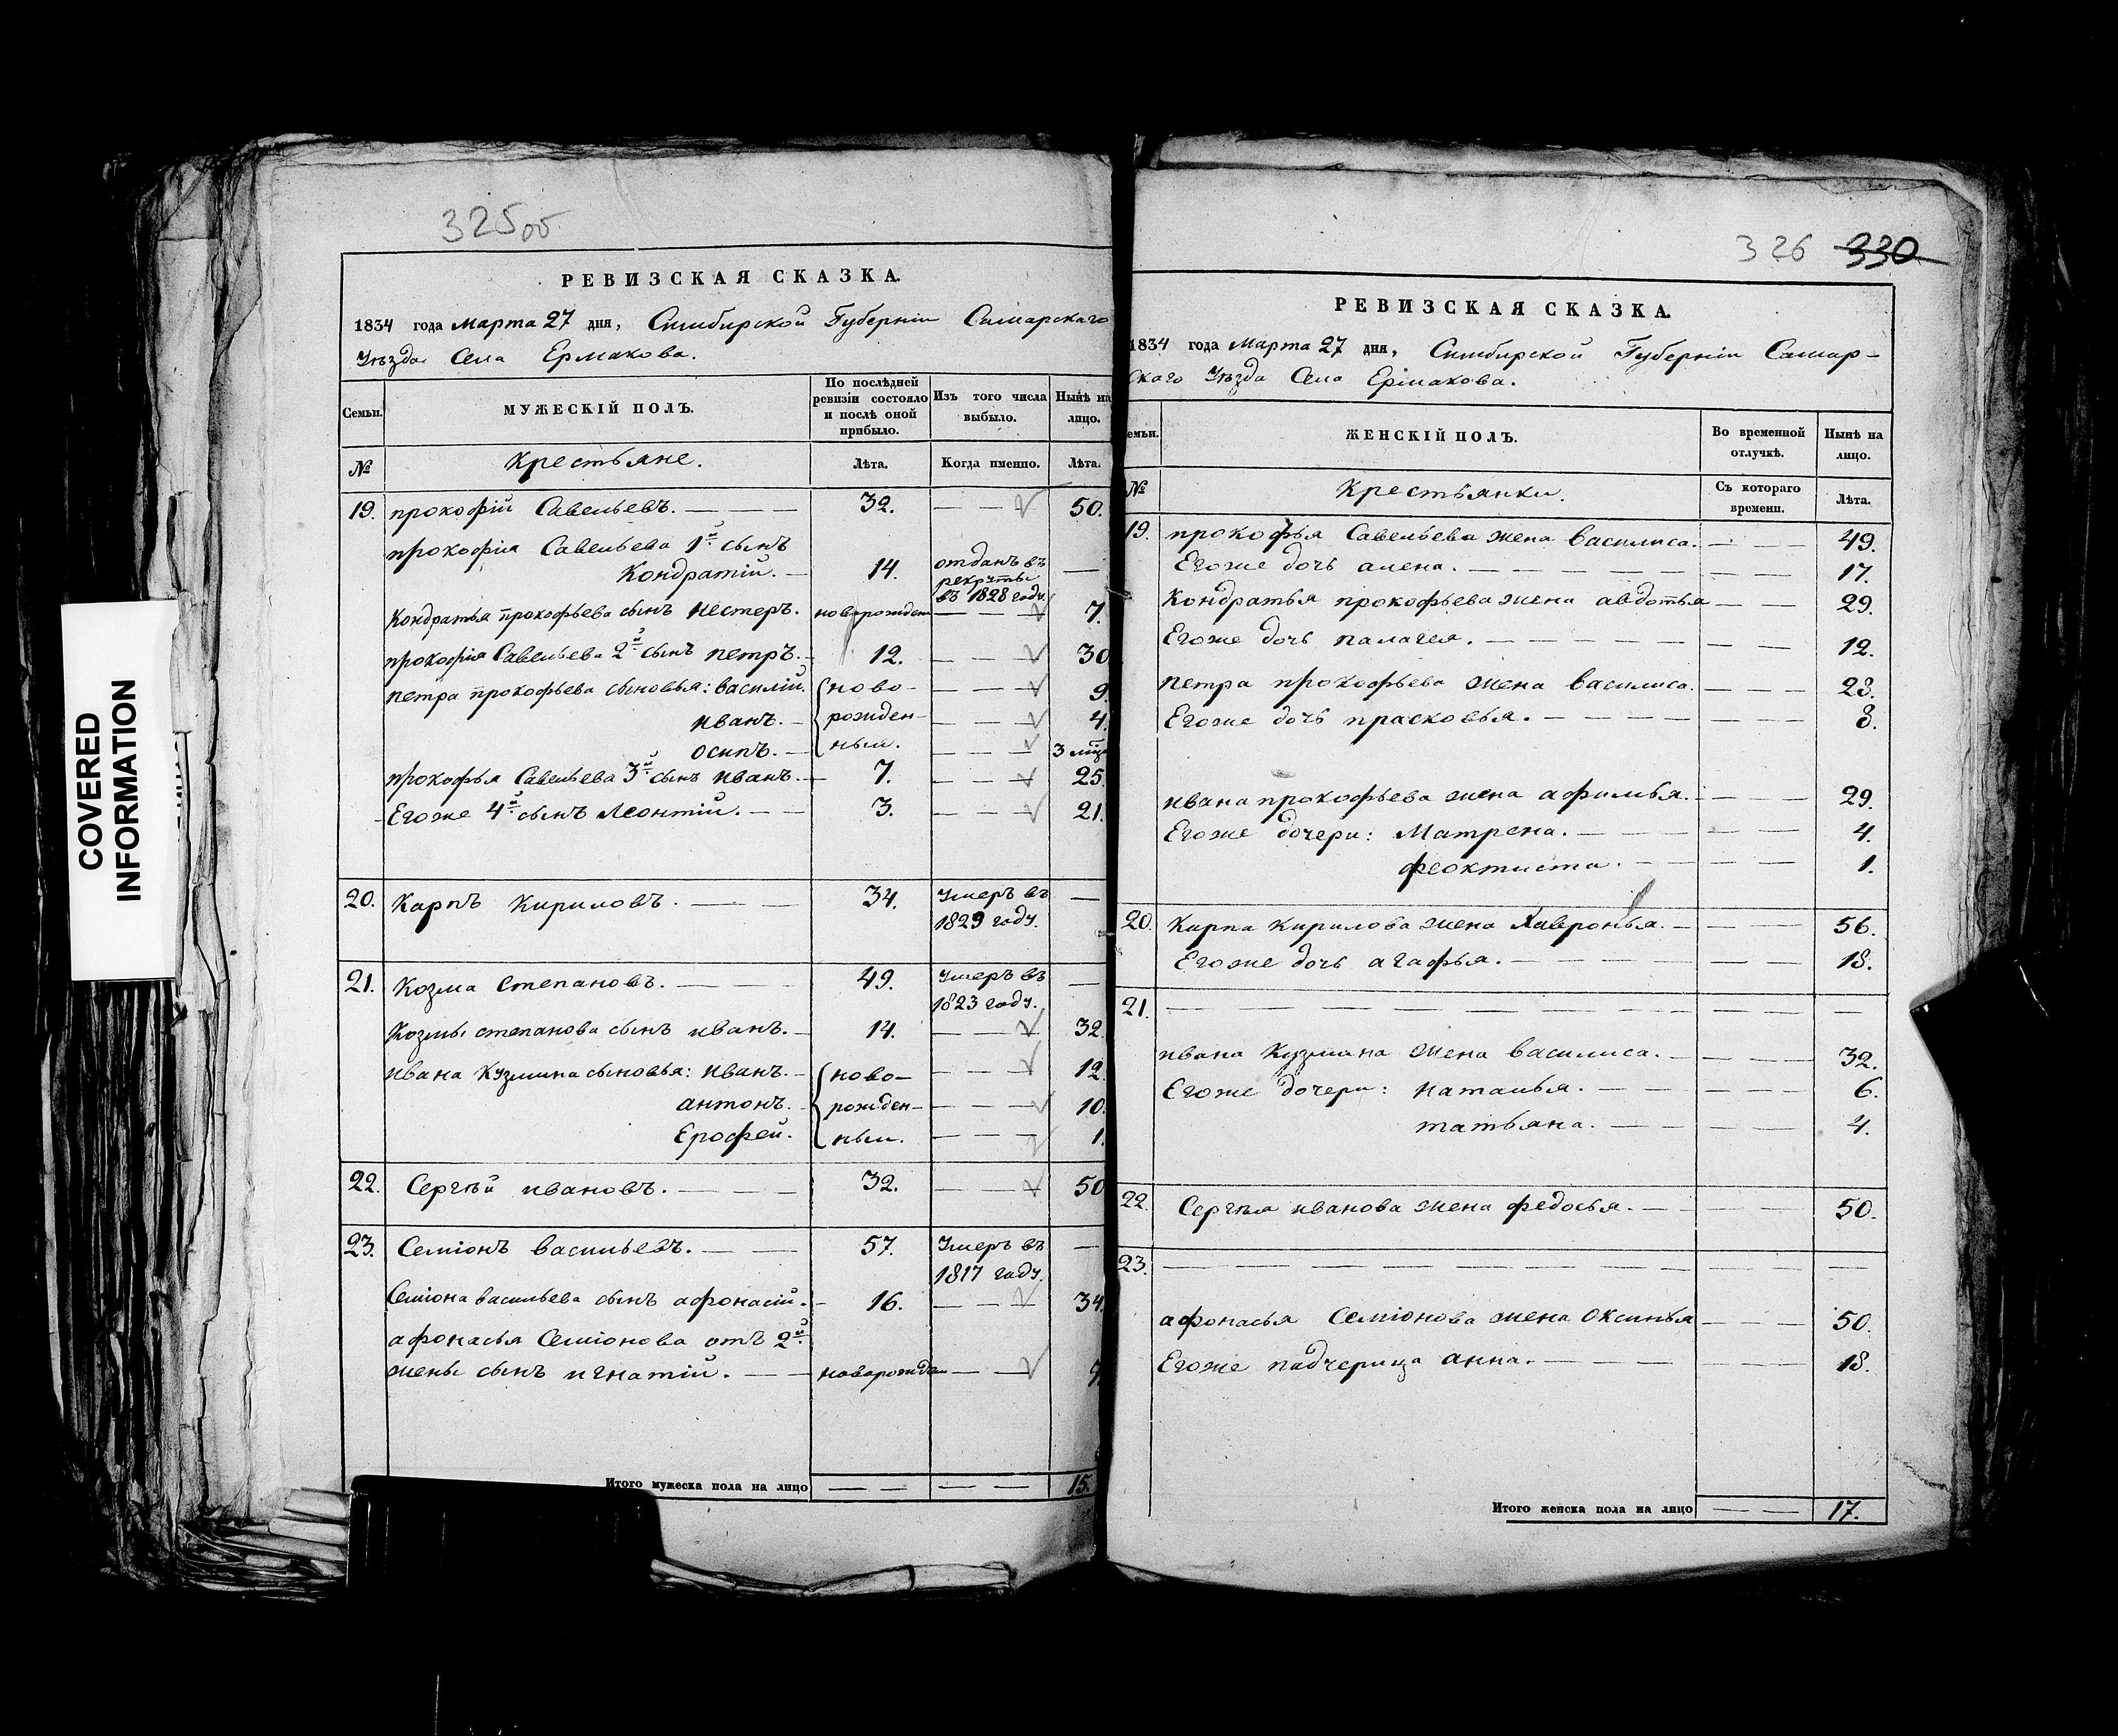 325об
РЕВИЗСКАЯ СКАЗКА.
1834 года Марта 27 дня, Симбирской Губерніи Самарскаго
Уѣзда Села Ермакова.
Семьи. МУЖЕСКІЙ ПОЛЪ. По послѣдней ревизіи состояло и послѣ оной прибыло. Изъ того числа выбыло. Нынѣ на лицо.
№ Крестьяне. Лѣта. Когда именно. Лѣта.
19. прокофій Савельевъ. 32. 50.
прокофія Савельева 1й сынъ
Кондратій. 14. отданъ въ рекруты въ 1828 году.
Кондратья прокофьева сынъ нестеръ. новорожден 7.
прокофія Савельева 2й сынъ петръ. 12. 30
петра прокофьева сыновья: василій. ново- 9
иванъ. рожден- 4.
осипъ. ныи. 3 мца
прокофья Савельева 3й сынъ иванъ. 7. 25
Егоже 4й сынъ Леонтій. 3. 21.
20. Карпъ Кириловъ. 34. Умеръ въ
1829 году.
21. Козма степановъ. 49. Умеръ въ
1823 году.
Козмы степанова сынъ иванъ. 14. 32
ивана Кузмина сыновья: иванъ. ново- 12
антонъ. рожден- 10.
Ерофей. ныи. 1.
22. Сергѣй ивановъ. 32. 50
23. Семіонъ васильевъ. 57. Умеръ въ
1817 году.
Семіона васильева сынъ афонасій. 16. 34.
афонасья Семіонова отъ 2й
жены сынъ игнатій. новорожден 7.
Итого мужеска пола на лицо 15.
326 330
РЕВИЗСКАЯ СКАЗКА.
1834 года Марта 27 дня, Симбирской Губерніи Самар-
скаго Уѣзда Села Ермакова.
емьи. ЖЕНСКІЙ ПОЛЪ. Во временной отлучкѣ. Нынѣ на лицо.
№ Крестьянки. Съ котораго времени. Лѣта.
19. прокофья Савельева жена василиса. 49.
Егоже дочь алена. 17.
Кондратья прокофьева жена авдотья 29.
Егоже дочь палагея. 12.
петра прокофьева жена василиса. 28.
Егоже дочь прасковья. 8.
ивана прокофьева жена афимья. 29.
Егоже дочери: Матрена. 4.
феоктиста. 1.
20. Карпа Кирилова жена Хавронья. 56.
Егоже дочь агафья. 18.
21.
ивана Кузмина жена василиса. 32.
Егоже дочери: наталья. 6.
татьяна. 4.
22. Сергѣя иванова жена федосья. 50.
23.
афонасья Семіонова жена Оксинья 50.
Егоже падчерица анна. 18.
Итого женска пола на лицо 17.
COVERED
INFORMATION